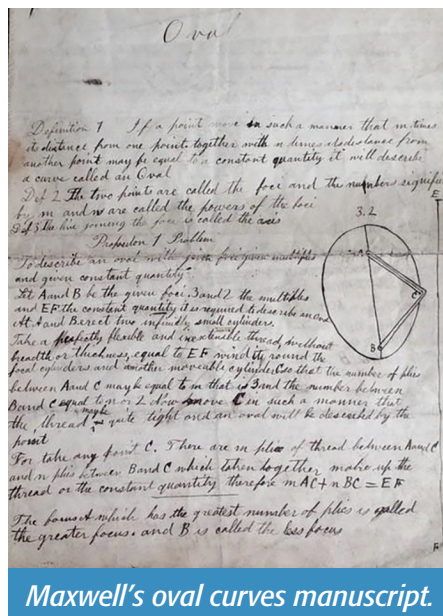 Oval
Definition 1 If a point move in such a manner that m times
its distance from one point together with n times its distance from
another point may be equal to a constant quantity it will describe
a curve called an Oval
Def 2 The two points are called the foci and the numbers signified
by m and n are called the powers of the foci
Def 3 the line joining the foci is called the axis
Proposition 1 Problem
To describe an oval with given foci given multiples
and given constant quantity
Let A and B be the given foci 3 and 2 the multiples
and EF the constant quantity it is required to describe an oval
At A and B erect two infinitely small cylinders.
Take a perfectly flexible and inextensible thread, without
breadth or thickness, equal to EF wind it round the
focal cylinders and another moveable cylinder C so that the number of plies
between A and C may be equal to m that is 3 and the number between
B and C equal to n or 2 Now move C in such a manner that
the thread may be quite tight and an oval will be described by the
point
For take any point C. There are m plies of thread between A and C
and n plies between B and C which taken together make up the
thread or the constant quantity therefore m AC + n BC = EF
The focus A which has the greatest number of plies is called
the greater focus. and B is called the less focus
3. 2
A
C
B
E
F
Maxwell's oval curves manuscript.